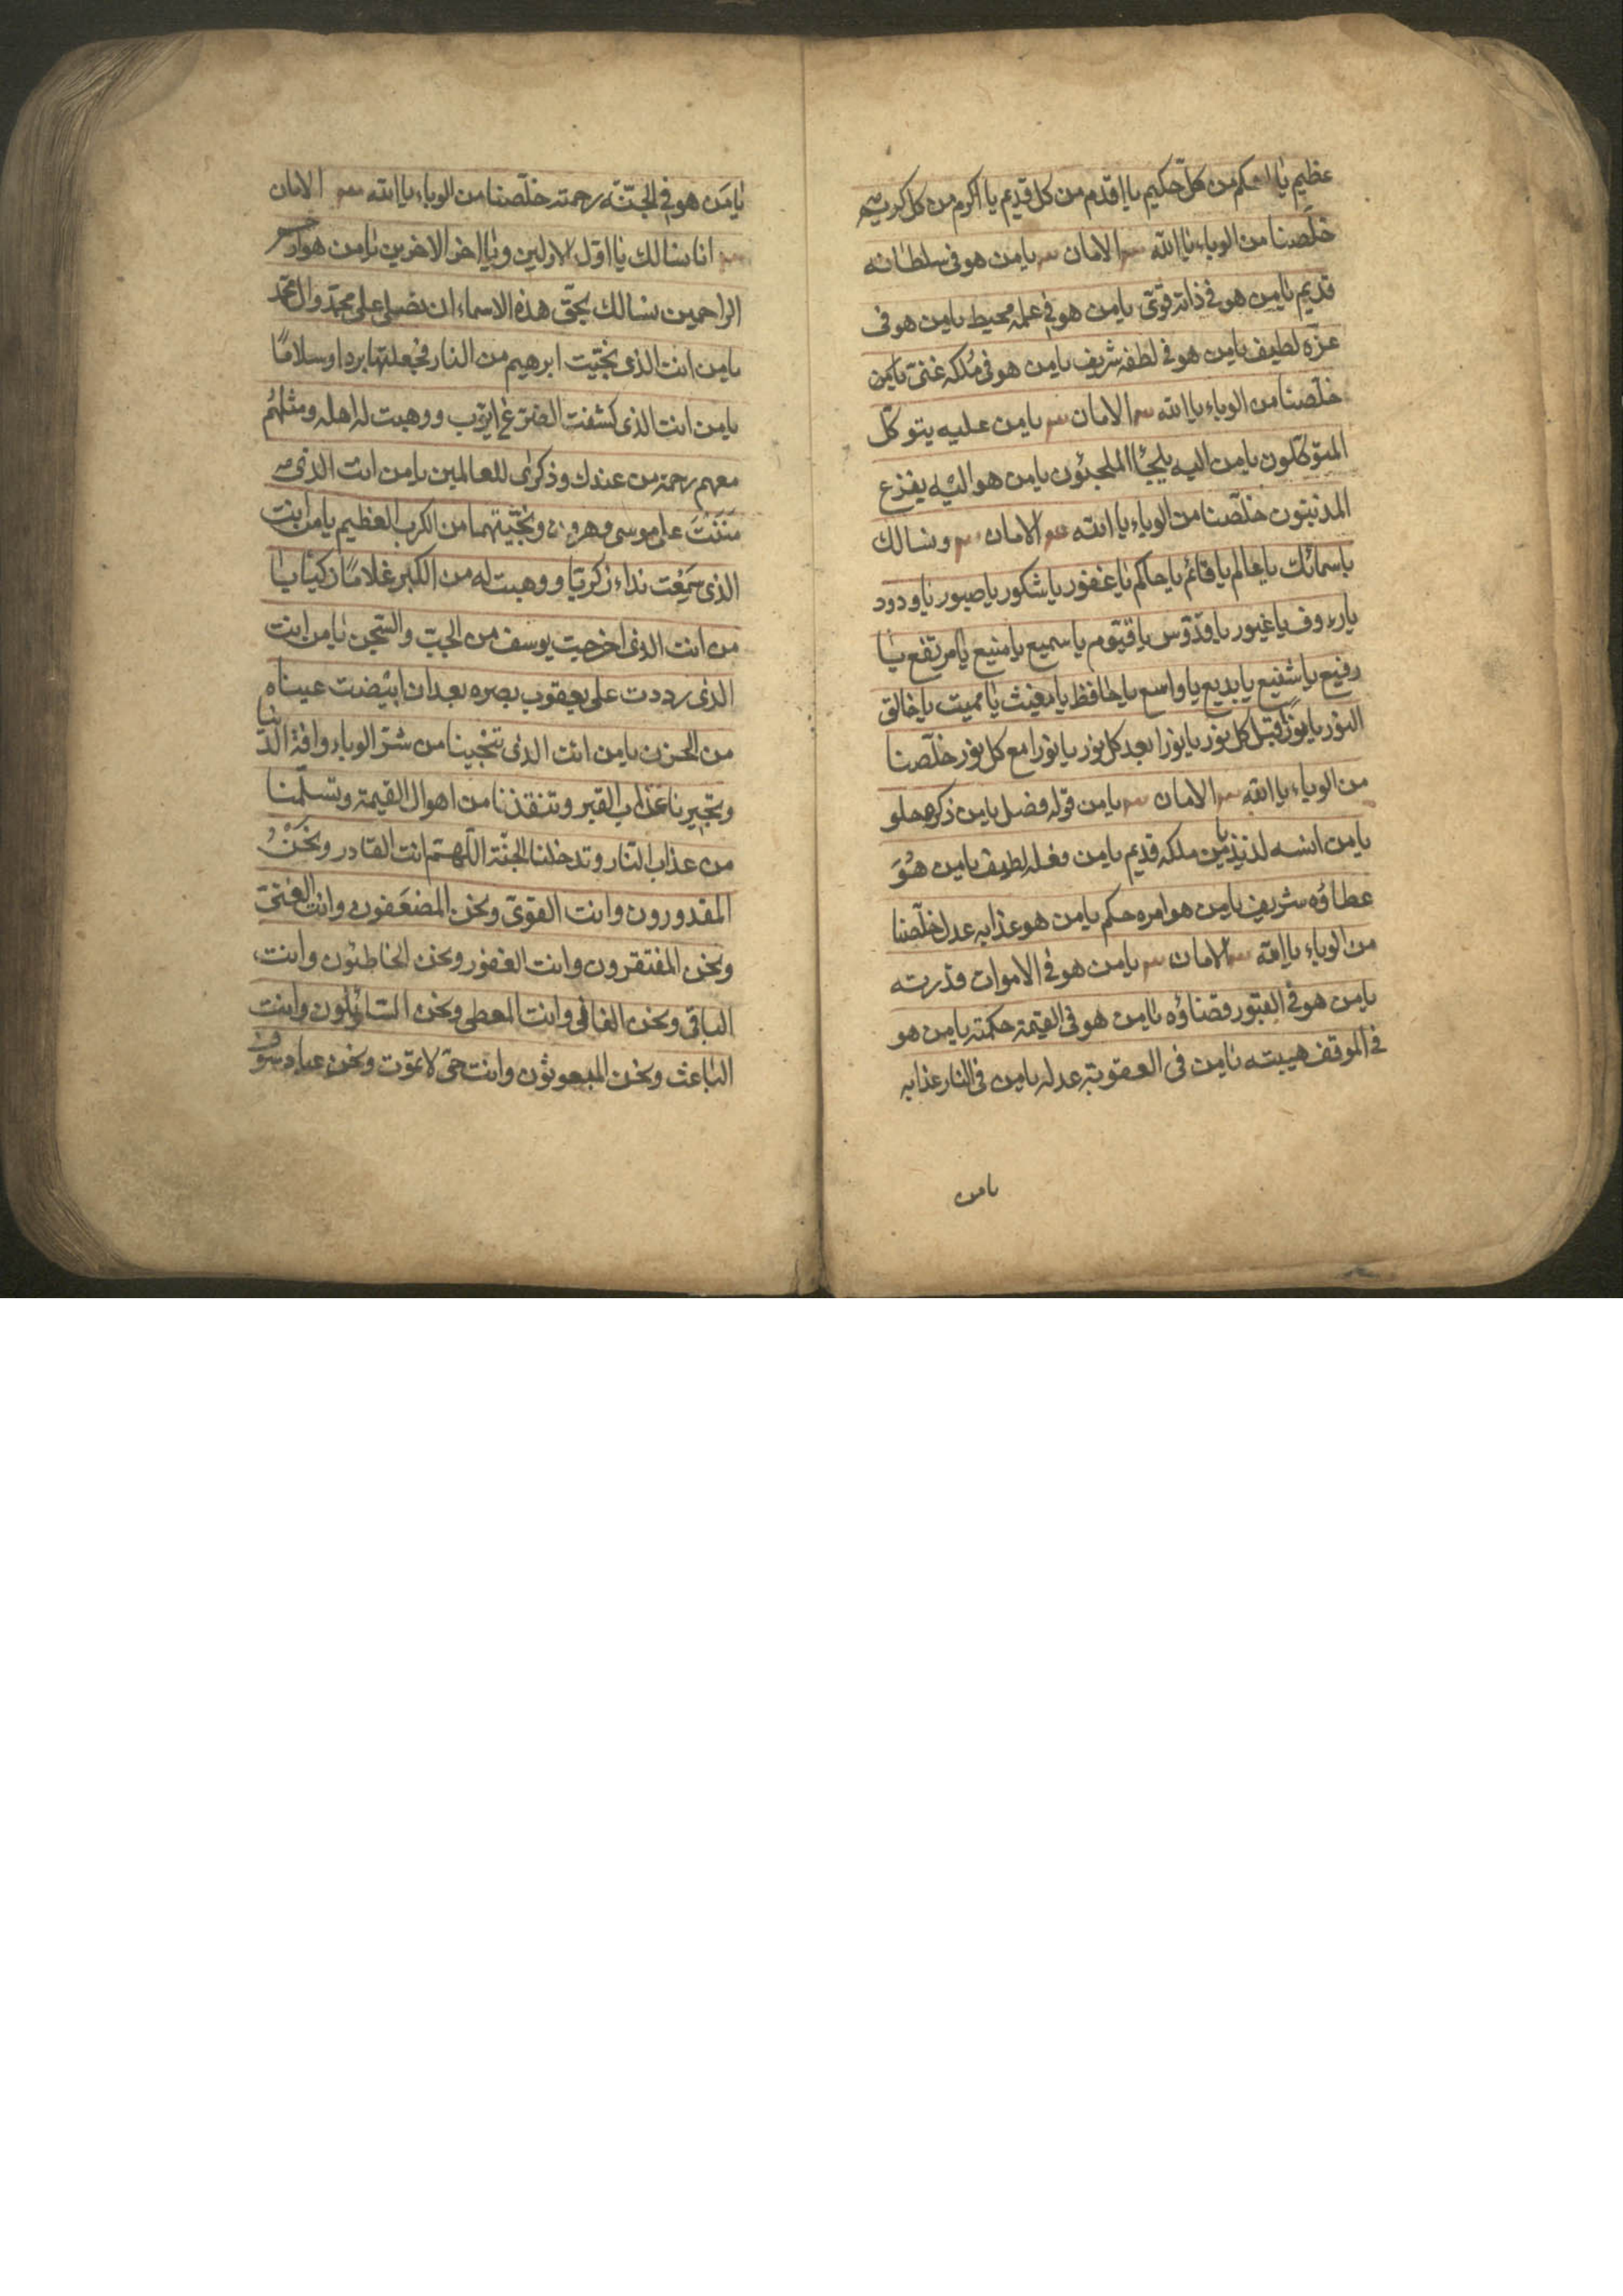 عظيم يا احكم من كل حكيم يا اقدم من كل قديم يا اكرم من كل كريم
خلّصنا من الوباء يا الله الامان يا من هو فى سلطانه
قديم يا من هو فى ذاته قوىّ يا من هو فى علمه محيط يا من هو فى
عزّه لطيف يا من هو فى لطفه شريف يا من هو فى مُلكه غنىّ يا من
خلّصنا من الوباء يا الله الامان يا من عليه يتوكّل
المتوكّلون يا من اليه يلجأ الملجئون يا من هو اليه يفزع
المذنبون خلّصنا من الوباء يا الله الامان ونسالك
باسمائك يا عالم يا قائم يا حاكم يا غفور يا شكور يا صبور يا ودود
يا رءوف يا غيور يا قدّوس يا قيّوم يا سميع يا منيع يا مرتفع يا
رفيع يا شفيع يا بديع يا واسع يا حافظ يا مغيث يا مميت يا خالق
النور يا نوراً قبل كل نور يا نورا بعد كل نور يا نورا مع كل نور خلّصنا
من الوباء يا الله الامان يا من قوله فضل يا من ذكره حلو
يا من انسه لذيذ يا من ملكه قديم يا من فعله لطيف يا من هُوَ
عطاؤه شريف يا من هو امره حكم يا من هو عذابه عدل خلّصنا
من الوباء يا الله الامان يا من هو فى الاموات قدرته
يا من هو فى القبور قضاؤه يا من هو فى القيمة حكمته يا من هو
فى الموقف هيبته يا من فى العقوبة عدله يا من فى النار عذابه
يا من
يا مَن هو فى الجنّة رحمته خلّصنا من الوباء يا الله الامان
انا نسالك يا اوّل الاولين ويا اخر الاخرين يا من هو ارحم
الراحمين نسالك بحقّ هذه الاسماء ان تصلى على محمّد وال محمّد
يا من انت الذى نجّيت ابرهيم من النار فجعلتها بردا وسلامًا
يا من انت الذى كشفت الضرّ عن ايّوب ووهبت له اهله ومثلهُم
معهم رحمة من عندك وذكرى للعالمين يا من انت الذى
مَنَنْتَ على موسى وهرون ونجّيتهما من الكرب العظيم يا من انت
الذى سَمِعْت نداء زكريّا ووهبت له من الكبر غلامًا زكيّا يا
من انت الذى اخرجت يوسف من الجبّ والسّجن يا من انت
الذى رددت على يعقوب بصره بعد ان ابيضت عيناه
من الحزن يا من انت الذى تنجينا من شرّ الوباء وافة الدّنيا
وتجيرنا عذاب القبر وتنقذنا من اهوال القيمة وتسلّمنا
من عذاب النّار وتدخلنا الجنّة اللّهمّ انت القادر ونَحْنُ
المقدورون وانت القوىّ ونحن المضعَفون وانت الغنىّ
ونحن المفتقرون وانت الغفور ونحن الخاطئون وانت
الباقى ونحن الفانى وانت المعطى ونحن السّائلون وانت
الباعث ونحن المبعوثون وانت حىّ لا تموّت ونحن عباد سوف